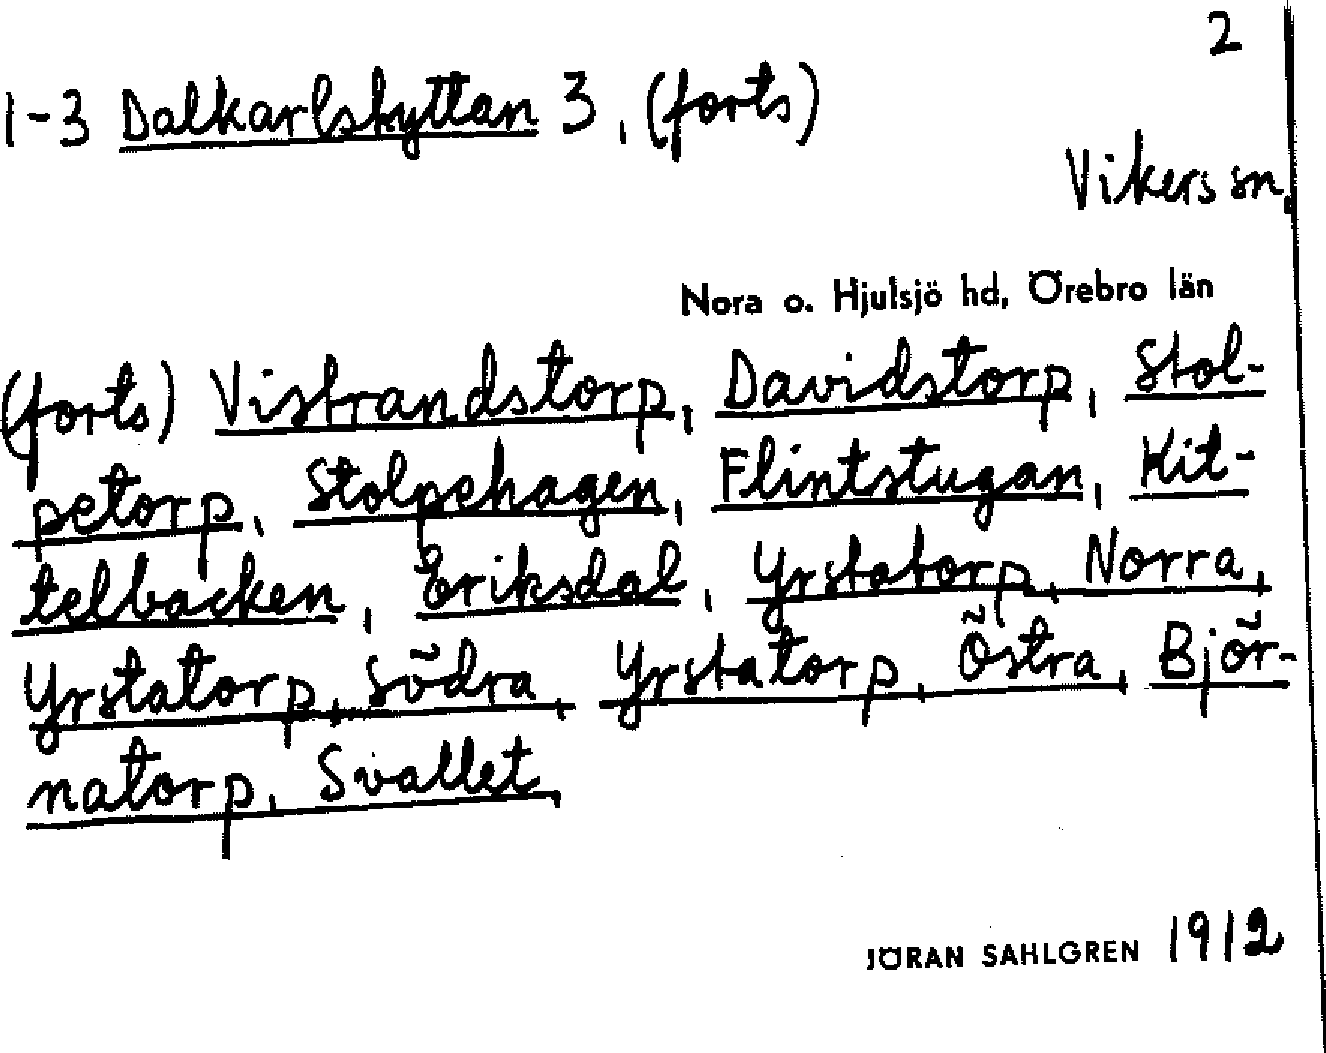 2
1-3 Dalkarlshyttan 3, (forts)
Vikers sn,
Nora o. Hjulsjö hd, Örebro län
(forts) Vistrandstorp, Davidstorp, Stol-
petorp, Stolpehagen, Flintstugan, Kit-
telbacken, Eriksdal, Yrstatorp, Norra,
Yrstatorp, Södra, Yrstatorp, Östra, Björ-
natorp, Svallet,
JÖRAN SAHLGREN 1912